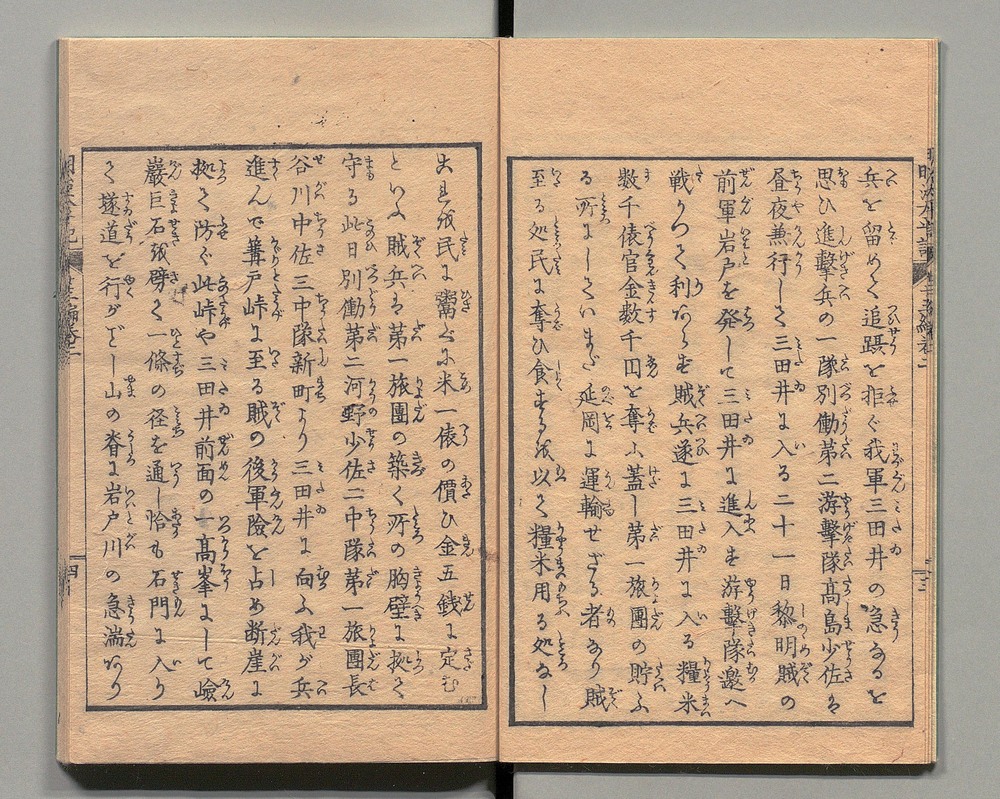 兵を留めて追蹑を拒ぐ我軍三田井の急なるを
思ひ進撃兵の一隊別働第二游撃隊高島少佐は
昼夜兼行して三田井に入る二十一日黎明賊の
前軍岩戸を発して三田井に進入す游撃隊邀へ
戦かつて利あらず賊兵遂に三田井に入る糧米
数千俵官金数千円を奪ふ蓋し第一旅團の貯ふ
る所にしていまだ延岡に運輸せざる者なり賊
至る処民に奪ひ食するを以て糧米用る処なし
を民に鬻ぐに米一俵の價ひ金五銭に定む
といふ賊兵は第一旅團の築く所の胸壁に拠て
守る此日別働第二河野少佐二中隊第一旅團長
谷川中佐三中隊新町より三田井に向ふ我が兵
進んで籌戸峠に至る賊の後軍險を占め断崖に
拠て防ぐ此峠や三田井前面の一高峯にして嶮
巖巨石を劈て一條の径を通し恰も石門に入り
て墜道を行がごとし山の脊に岩戸川の急湍あり